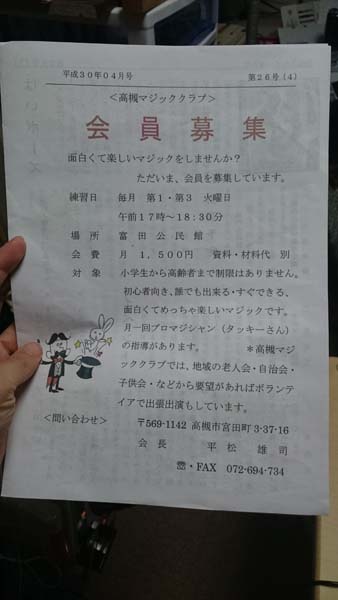 平成３０年０４月号　第２６号（４）
＜高槻マジッククラブ＞
会員募集
面白くて楽しいマジックをしませんか？
ただいま、会員を募集しています。
練習日　毎月　第１・第３　火曜日
午前１７時～１８:３０分
場　所　富田公民館
会　費　月　１,５００円　資料・材料代　別
対　象　小学生から高齢者まで制限はありません。
初心者向き、誰でも出来る・すぐできる、
面白くてめっちゃ楽しいマジックです。
月一回プロマジシャン（タッキーさん）
の指導があります。　＊高槻マジ
ッククラブでは、地域の老人会・自治会・
子供会・などから要望があればボランテ
イアで出張出演もしています。
＜問い合わせ＞　〒569-1142 高槻市宮田町 3-37-16
会　長　平　松　雄　司
☎・FAX　072-694-734